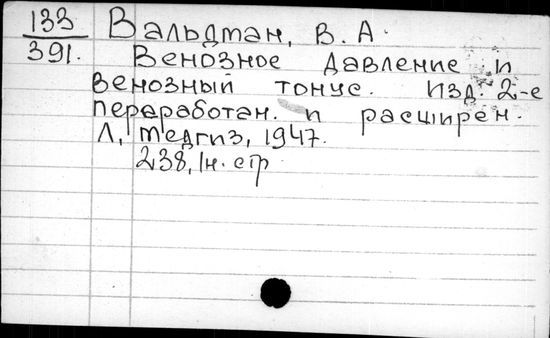 133 Вальдман, В. А.
391. Венозное давление и
венозный тонус. Изд. 2-е
переработан. и расширен.
Л, Медгиз, 1947.
238, 1н. стр